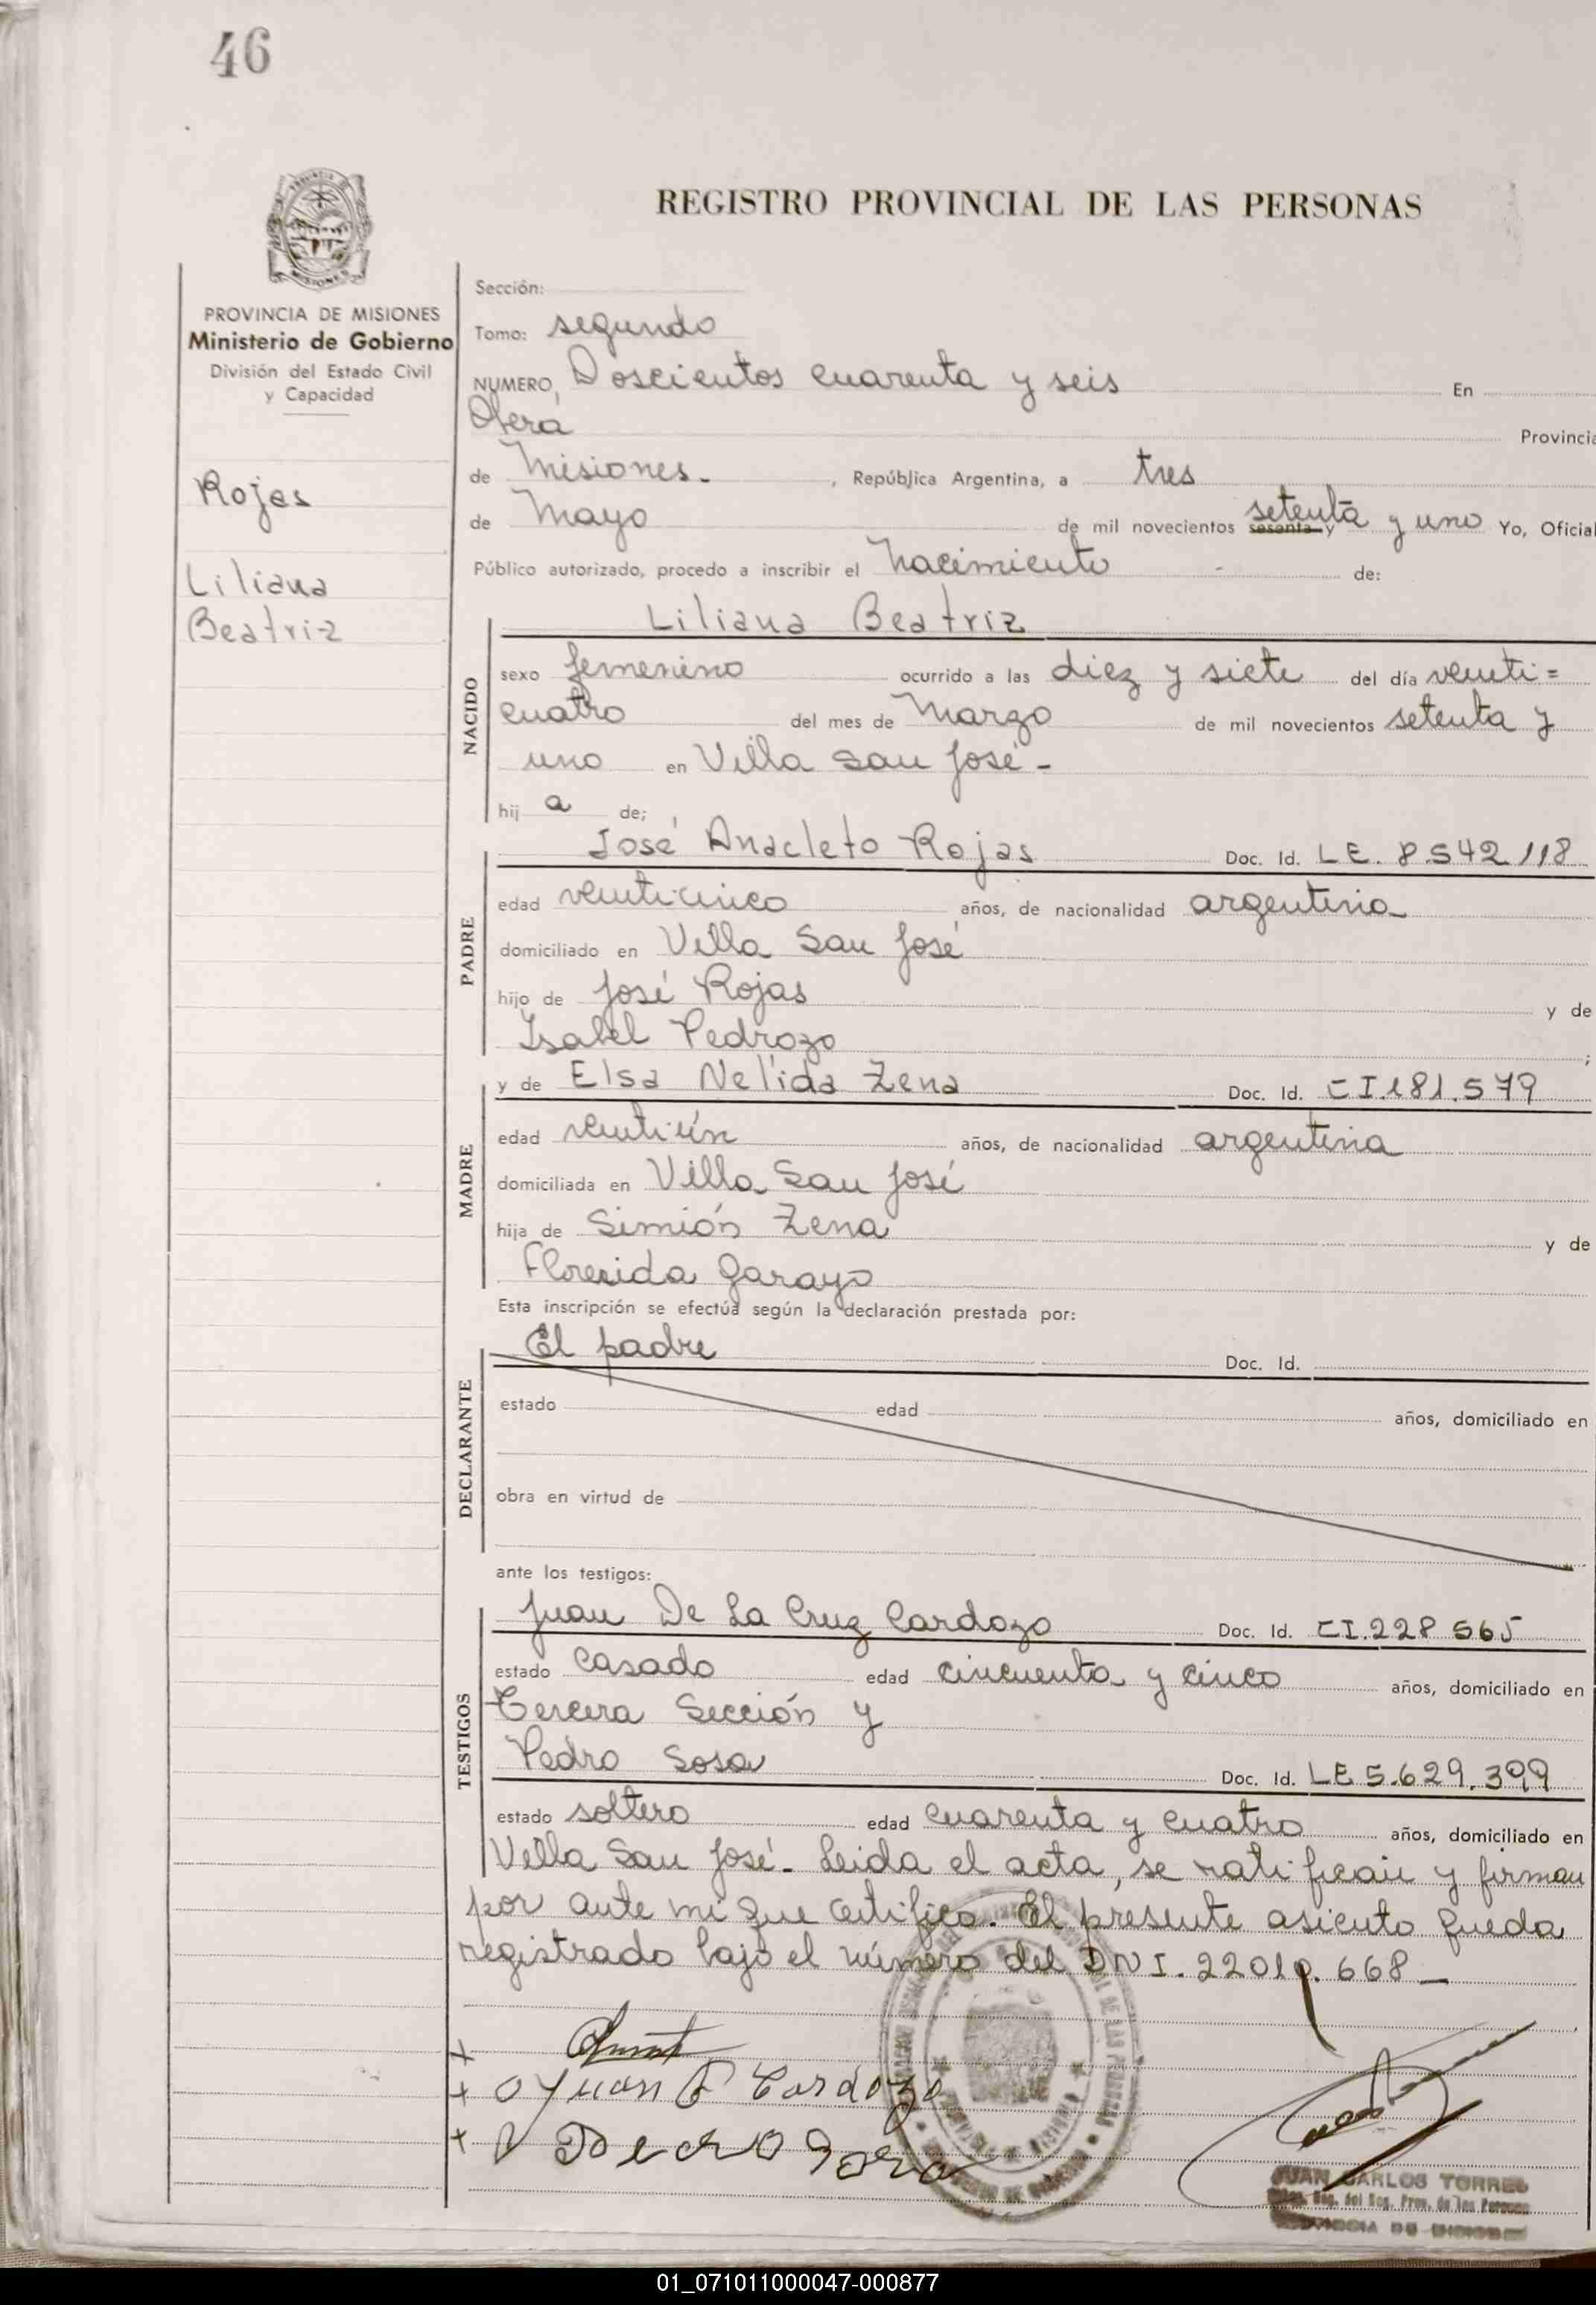 46
REGISTRO PROVINCIAL DE LAS PERSONAS
PROVINCIA DE MISIONES
Ministerio de Gobierno
División del Estado Civil
y Capacidad
Rojas
Liliana
Beatriz
Sección:
Tomo: segundo
NUMERO, Doscientos cuarenta y seis En
Oberá Provincia
de Misiones. , República Argentina, a tres
de Mayo de mil novecientos sesenta y setenta y uno Yo, Oficial
Público autorizado, procedo a inscribir el nacimiento de:
NACIDO
Liliana Beatriz
sexo femenino ocurrido a las diez y siete del día veinti=
cuatro del mes de Marzo de mil novecientos setenta y
uno en Villa San José -
hij a de;
PADRE
José Anacleto Rojas Doc. Id. L E. 8.542.118
edad veinticinco años, de nacionalidad argentina
domiciliado en Villa San José
hijo de José Rojas y de
Isabel Pedrozo ;
MADRE
y de Elsa Nelida Zena Doc. Id. CI.181.579
edad veintiún años, de nacionalidad argentina
domiciliada en Villa San José
hija de Simión Zena y de
Garayo
Esta inscripción se efectúa según la declaración prestada por:
DECLARANTE
El padre Doc. Id.
estado edad años, domiciliado en
obra en virtud de
ante los testigos:
TESTIGOS
Juan De La Cruz Cardozo Doc. Id. CI.228 565
estado casado edad cincuenta y cinco años, domiciliado en
Tercera Sección y
Pedro Sosa Doc. Id. LE 5.629.399
estado soltero edad cuarenta y cuatro años, domiciliado en
Villa San José. Leida el acta, se ratifican y firman
por ante mí que certifico. El presente asiento queda
registrado bajo el número del DNI. 668 -
Juan Cardozo
JUAN CARLOS TORRES
Reg. del Reg. Prov. de las Personas
01_071011000047-000877